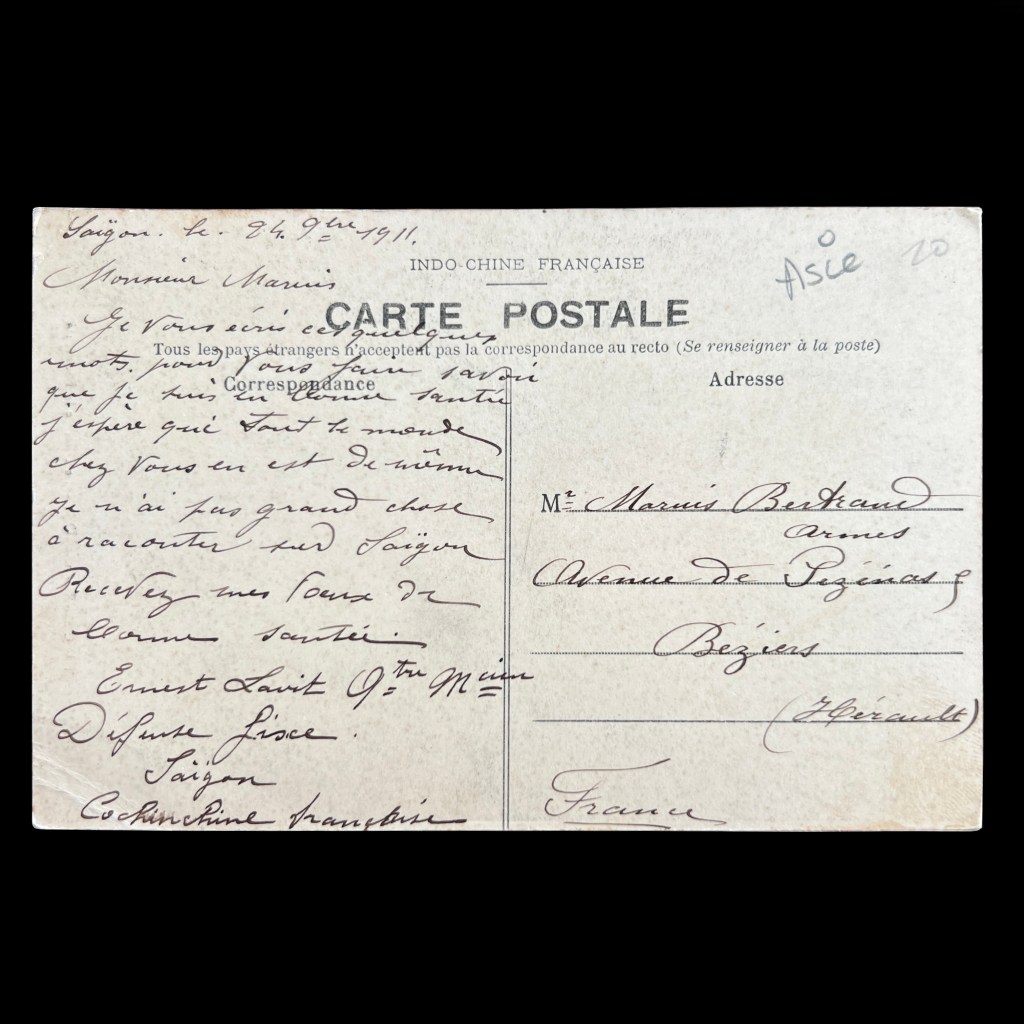 Saïgon. le. 24. 9bre 1911.
Monsieur Marius
Je Vous écris ces quelques
mots. pour Vous faire savoir
que je suis en bonne santée
j'espère que tout le monde
chez Vous en est de même
Je n'ai pas grand chose
à raconter sur Saïgon
Recevez mes Voeux de
bonne santée.
Ernest Lavit Qtre Mcien
Défense fixe.
Saïgon
Cochinchine française
INDO-CHINE FRANÇAISE
CARTE POSTALE
Tous les pays étrangers n'acceptent pas la correspondance au recto (Se renseigner à la poste)
Correspondance
Adresse
Asie
20
Mr Marius Bertrand
armes
Avenue de Pézénas 9
Béziers
(Hérault)
France